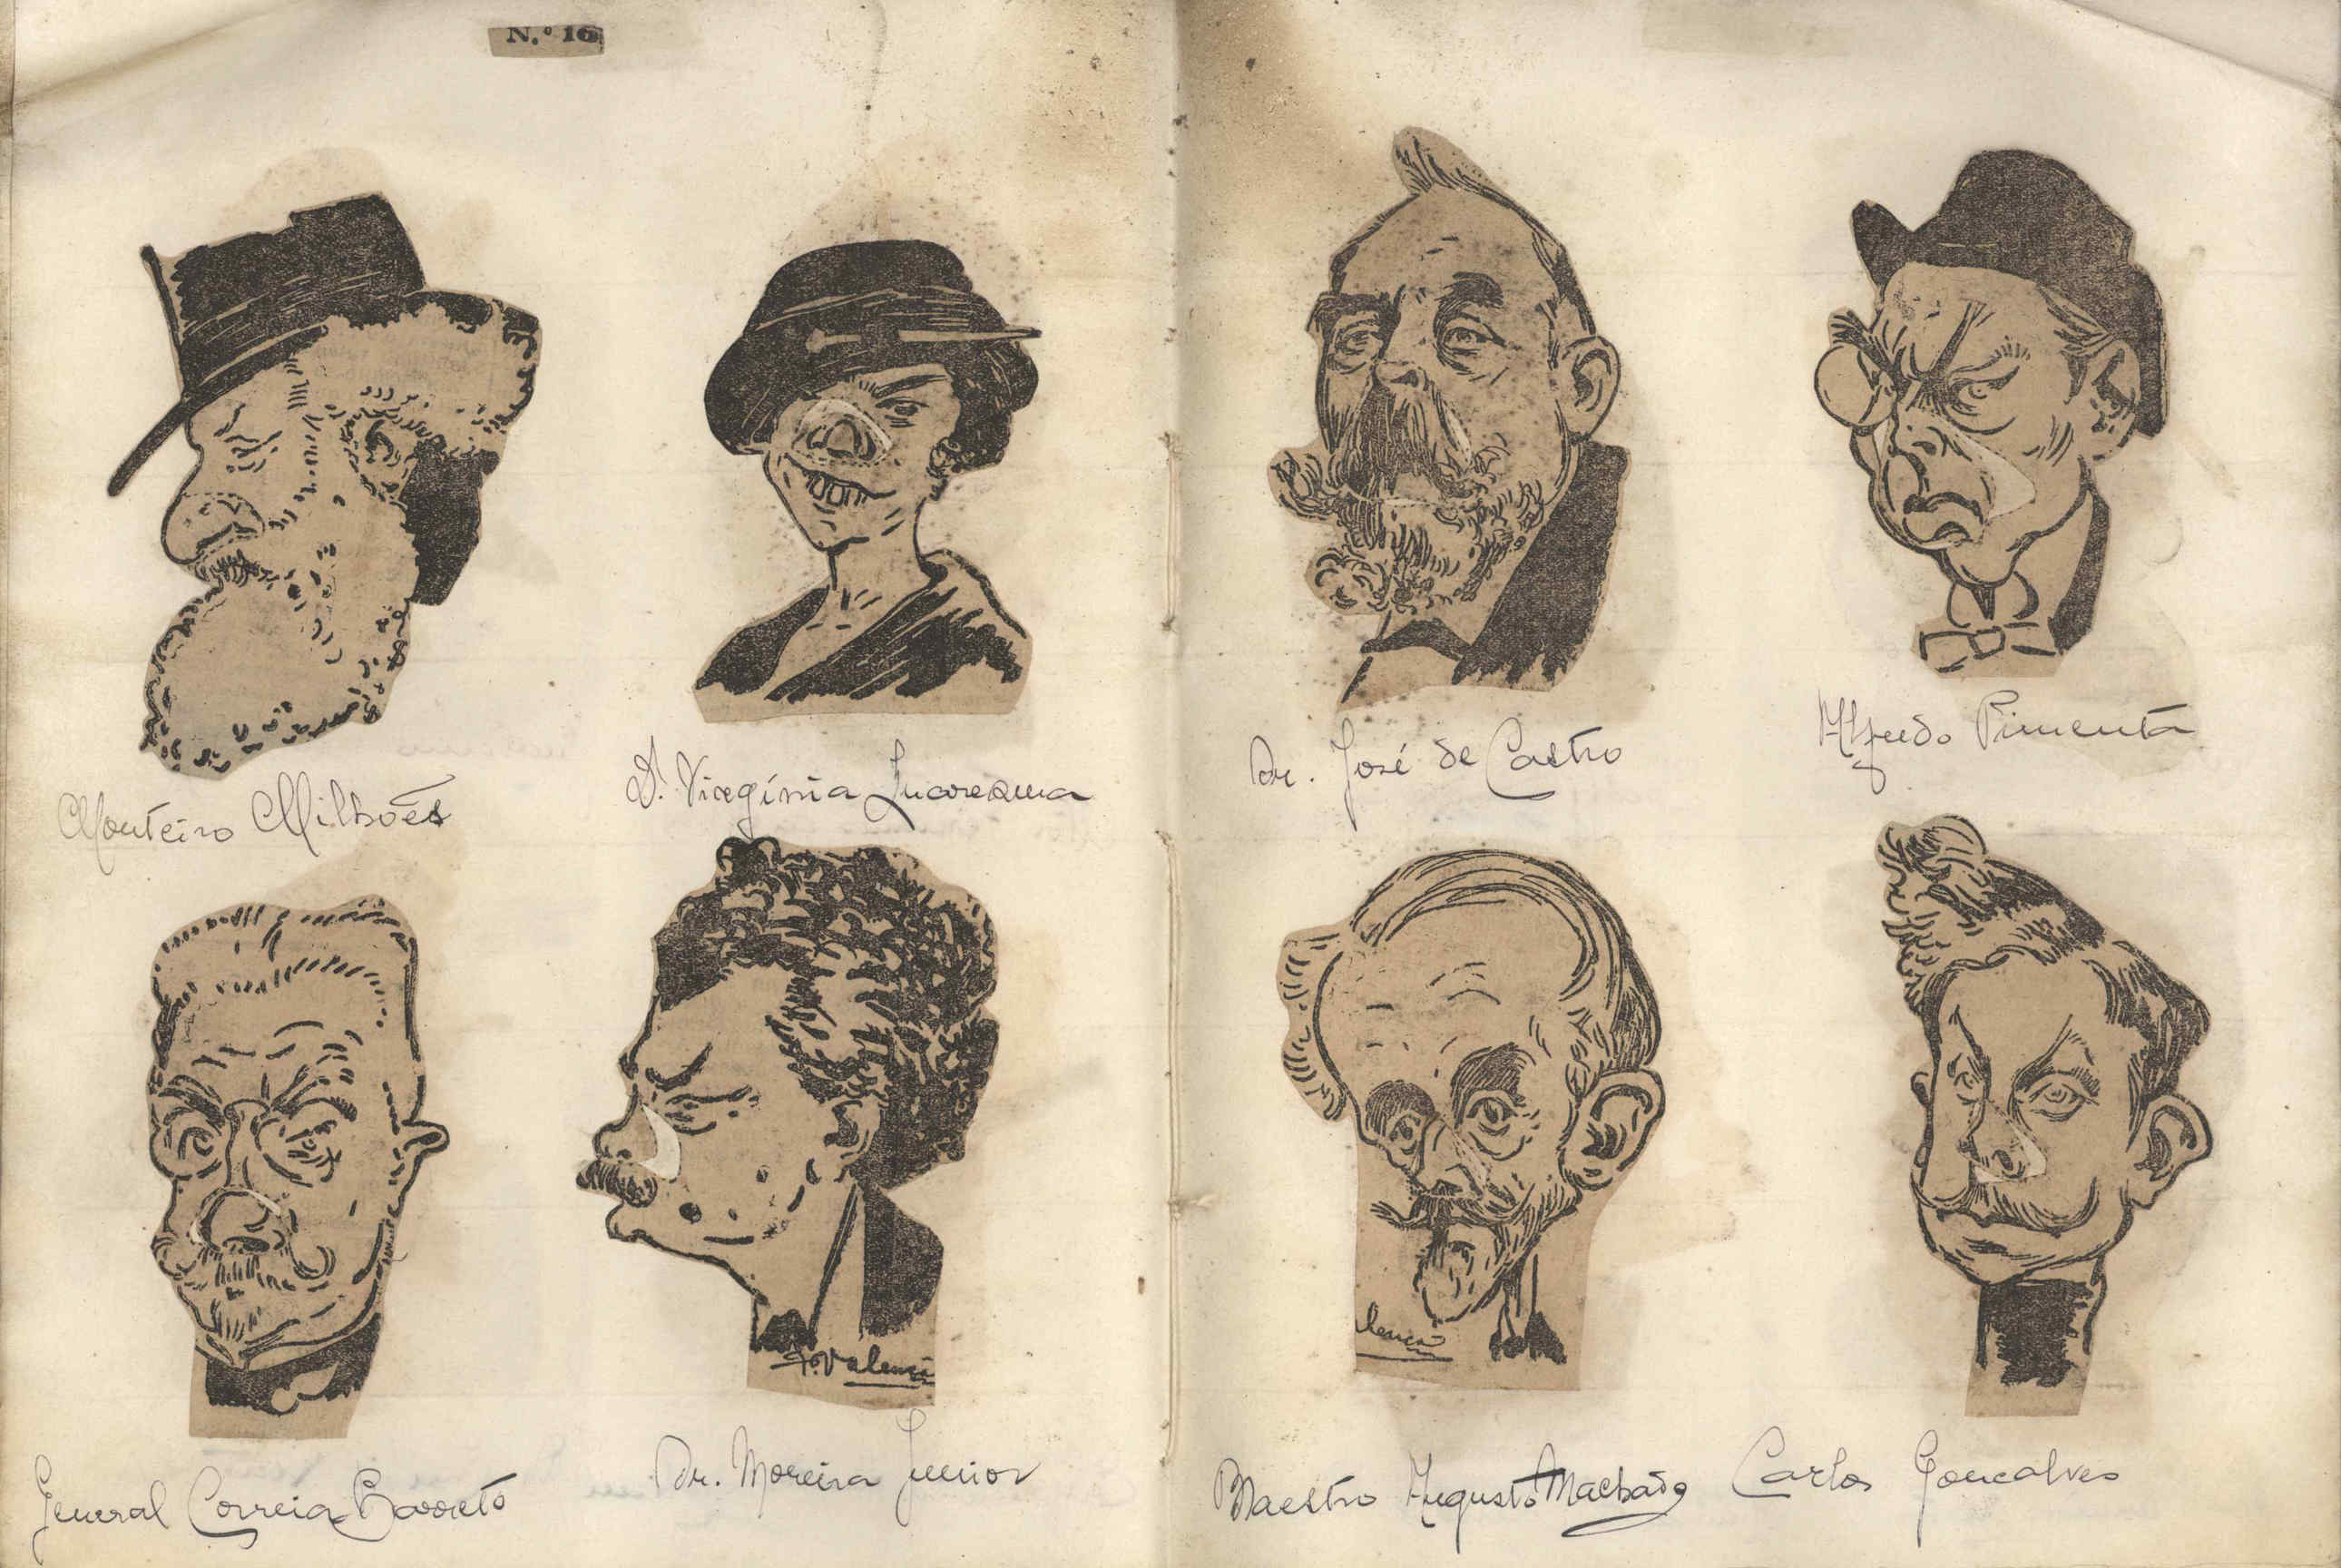 N.º 16
Monteiro Milhões
D. Virgínia Quaresma
Dr. José de Castro
Alfredo Pimenta
F. Valença
lença
General Correia Barreto
Dr. Moreira Junior
Maestro Augusto Machado
Carlos Gonçalves